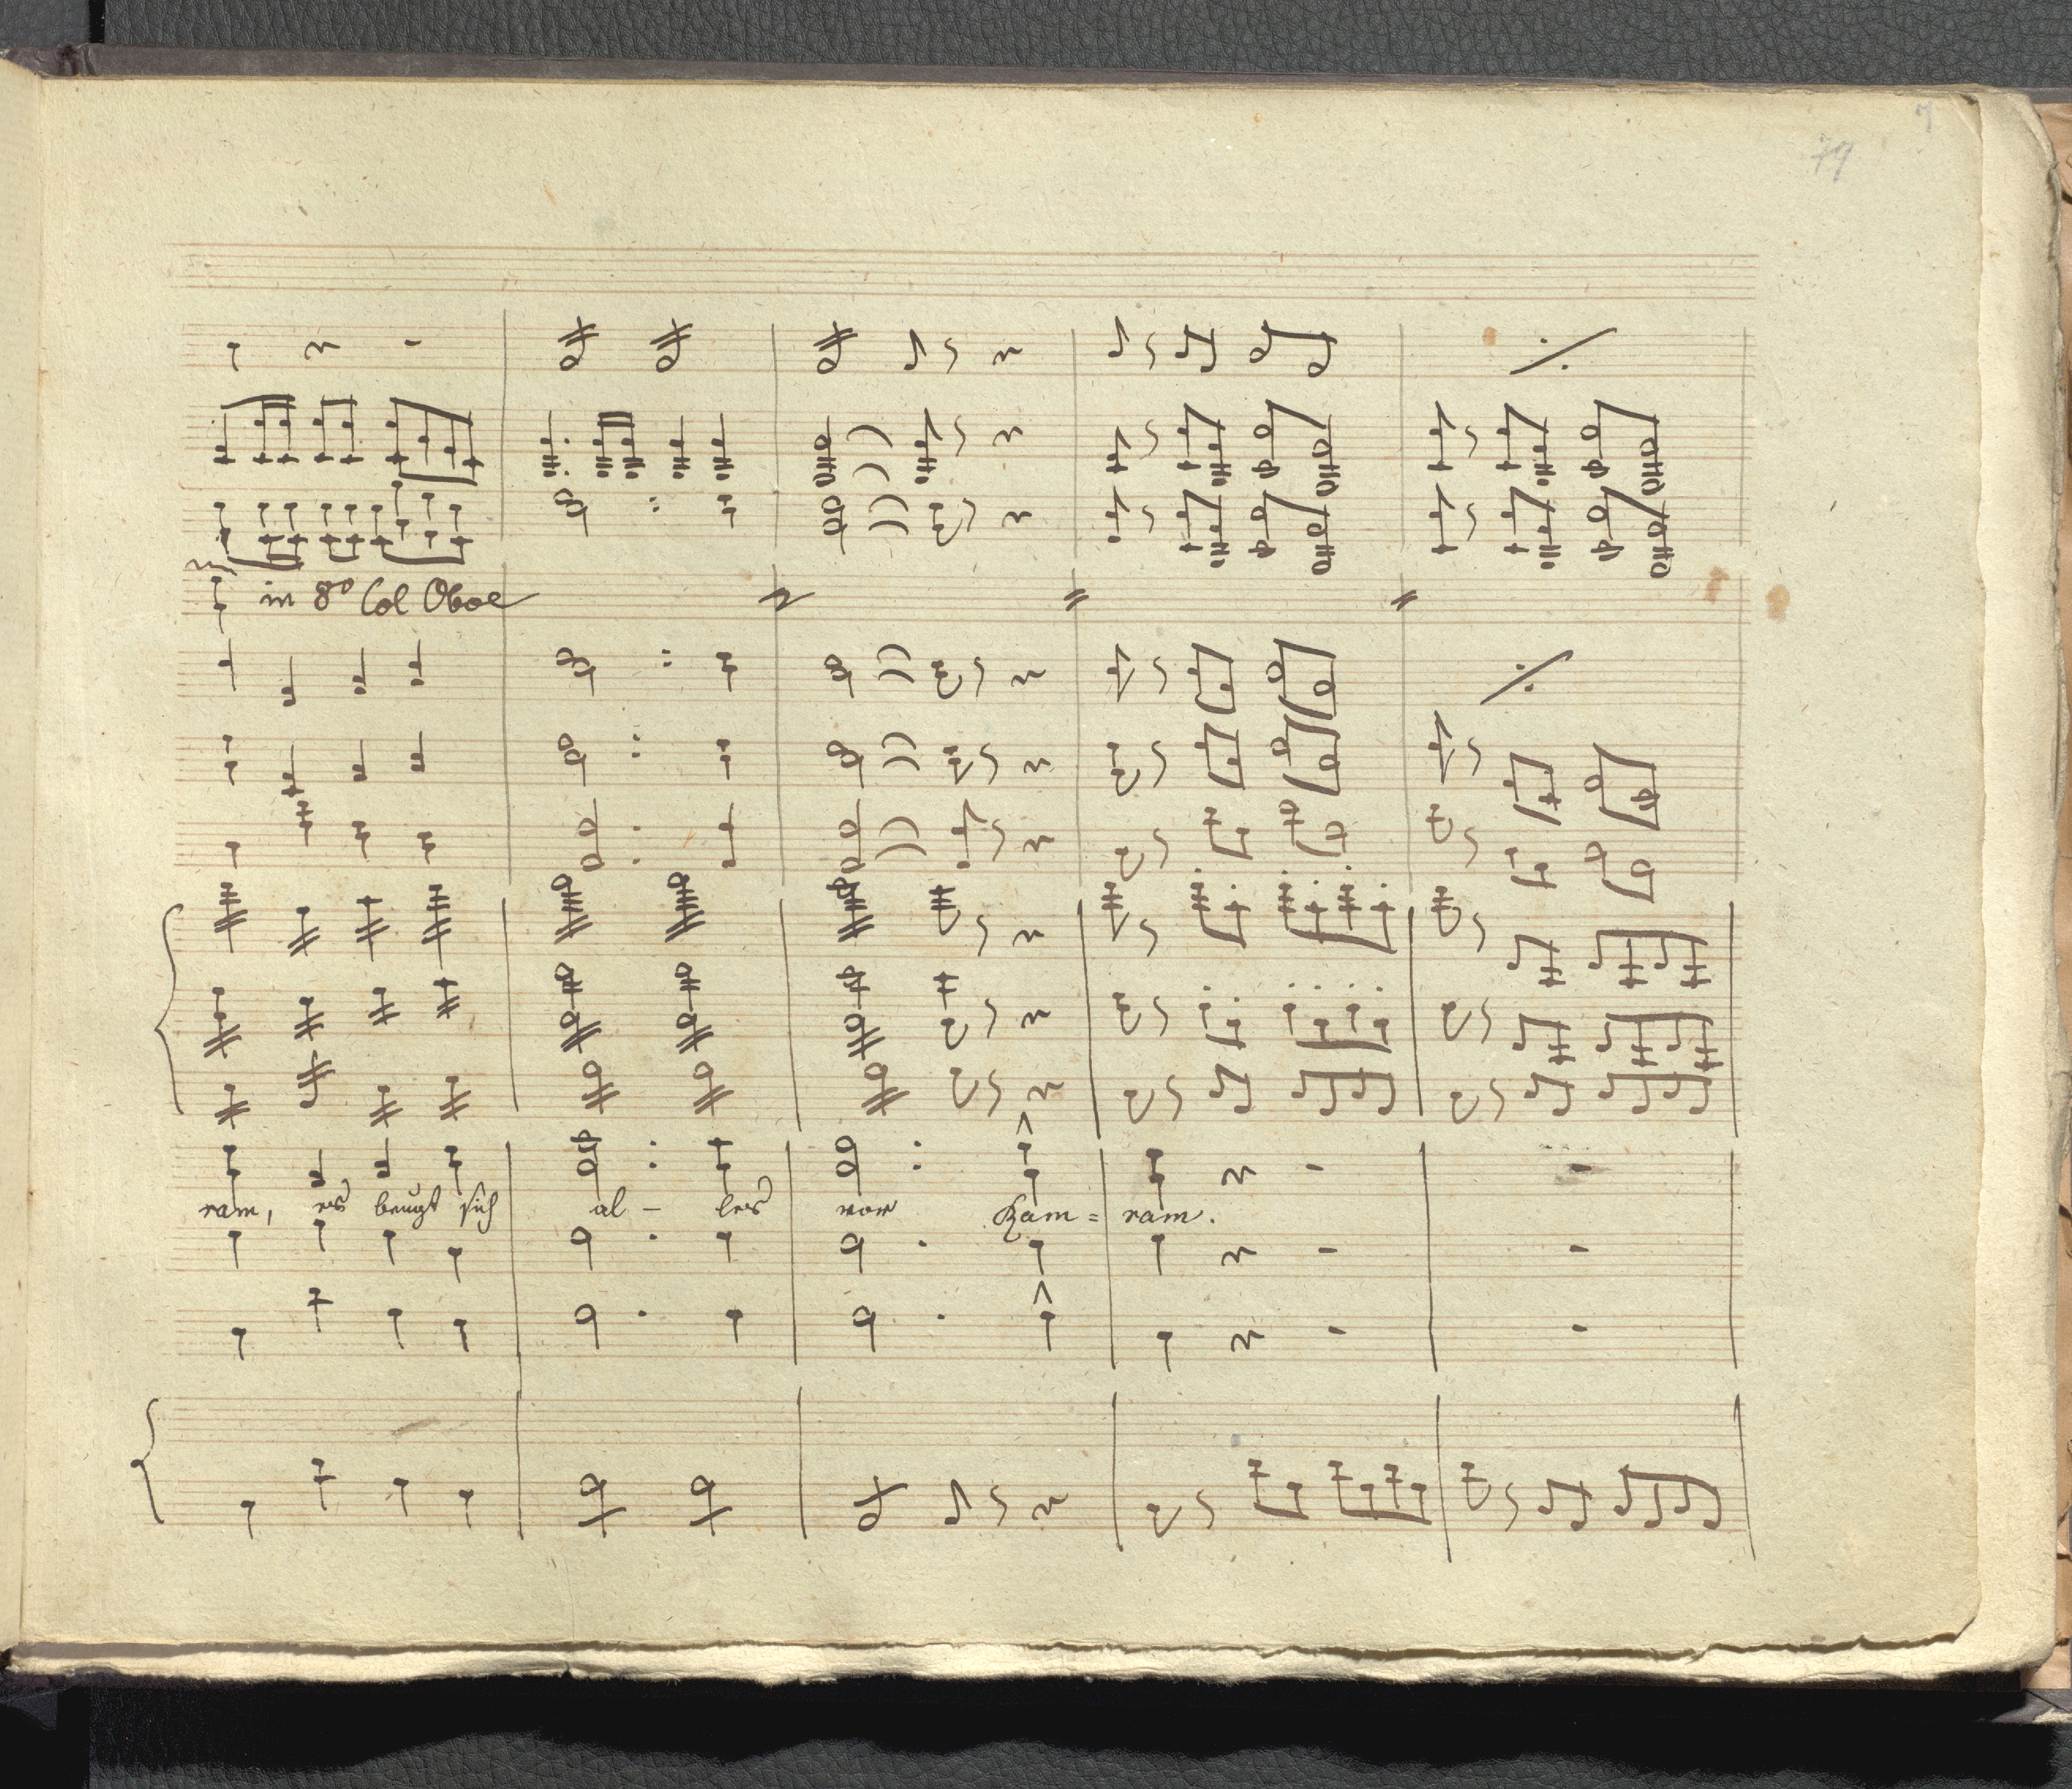 7
79
in 8vo Col Oboe
ram, es beugt sich al - les vor Kam = ram.